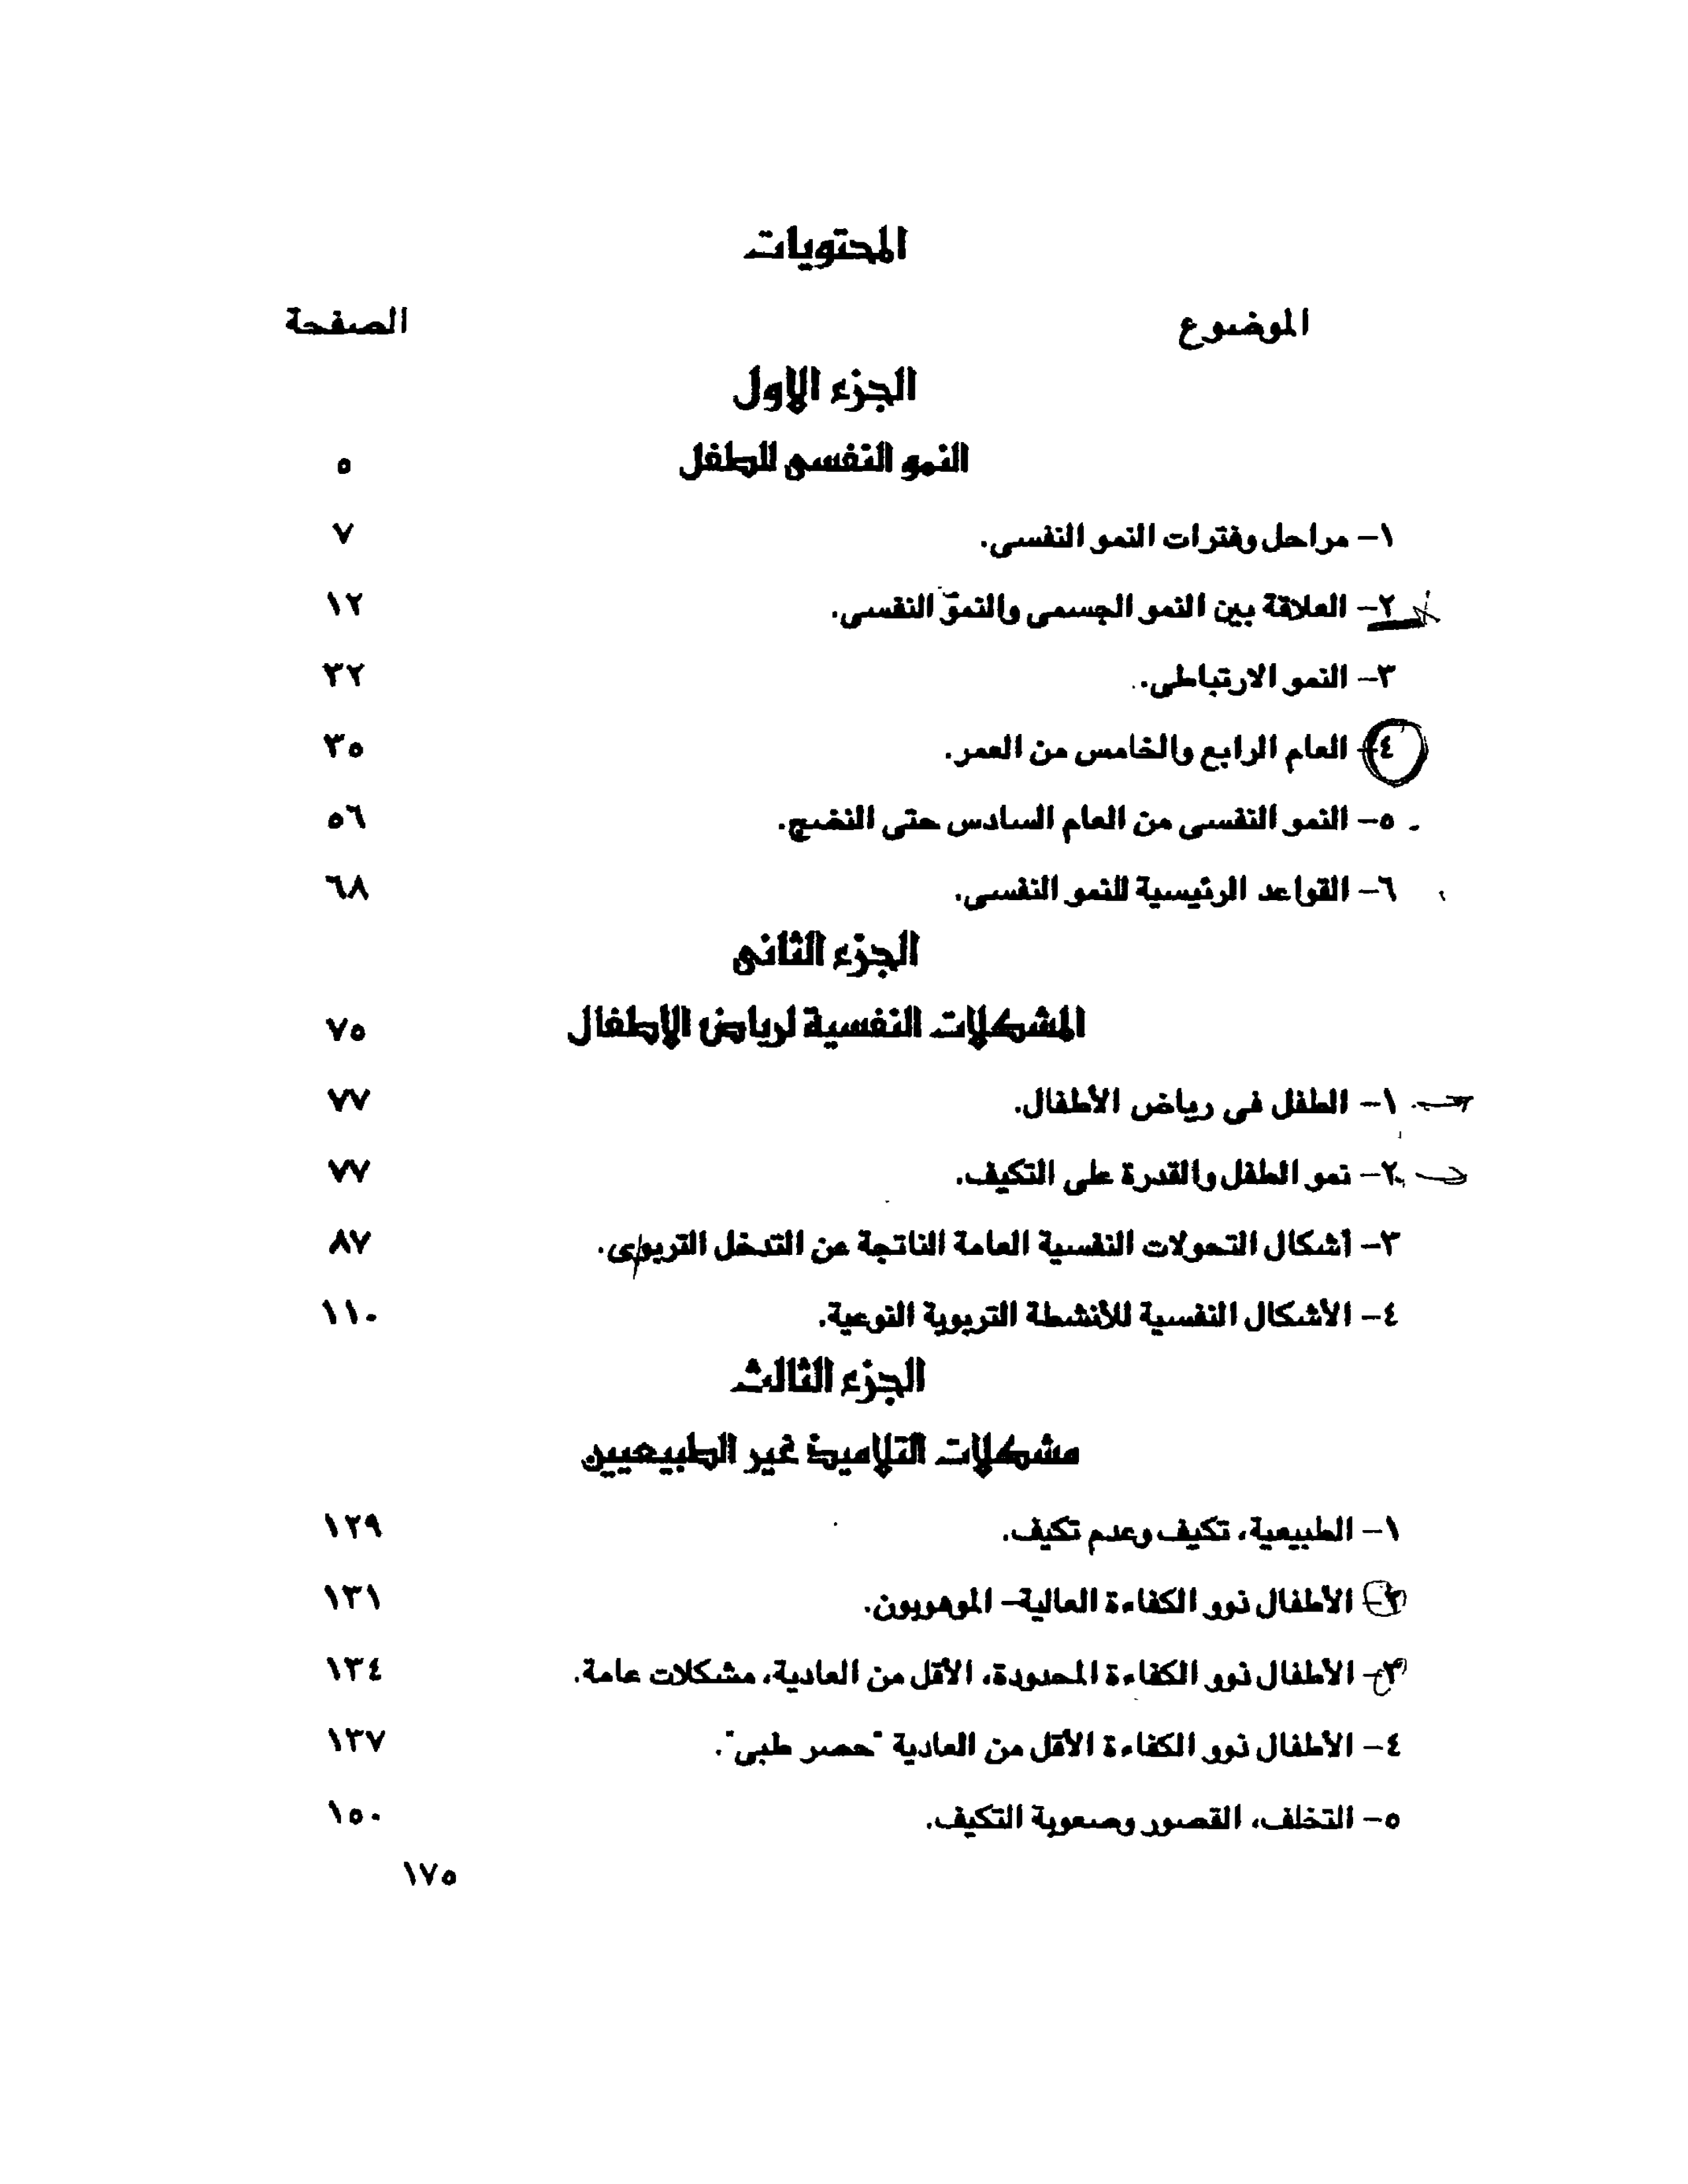 المحتويات
الموضوع الصفحة
الجزء الاول
النمو النفسى للطفل ٥
١- مراحل وفترات النمو النفسى. ٧
٢- العلاقة بين النمو الجسمى والنمو النفسى. ١٢
٣- النمو الارتباطى. ٣٢
٤- العام الرابع والخامس من العمر. ٣٥
٥- النمو النفسى من العام السادس حتى النضج. ٥٦
٦- القواعد الرئيسية للنمو النفسى. ٦٨
الجزء الثانى
المشكلات النفسية لرياض الإطفال ٧٥
١- الطفل فى رياض الأطفال. ٧٧
٢- نمو الطفل والقدرة على التكيف. ٧٧
٣- أشكال التحولات النفسية العامة الناتجة عن التدخل التربوى. ٨٧
٤- الأشكال النفسية للأنشطة التربوية النوعية. ١١٠
الجزء الثالث
مشكلات التلاميذ غير الطبيعيين
١- الطبيعية، تكيف وعدم تكيف. ١٢٩
٢- الأطفال نوو الكفاءة العالية- الموهوبون. ١٣١
٣- الأطفال نوو الكفاءة المحدودة، الأقل من العادية، مشكلات عامة. ١٣٤
٤- الأطفال نوو الكفاءة الأقل من العادية "حصر طبى". ١٣٧
٥- التخلف، القصور وصعوبة التكيف. ١٥٠
١٧٥